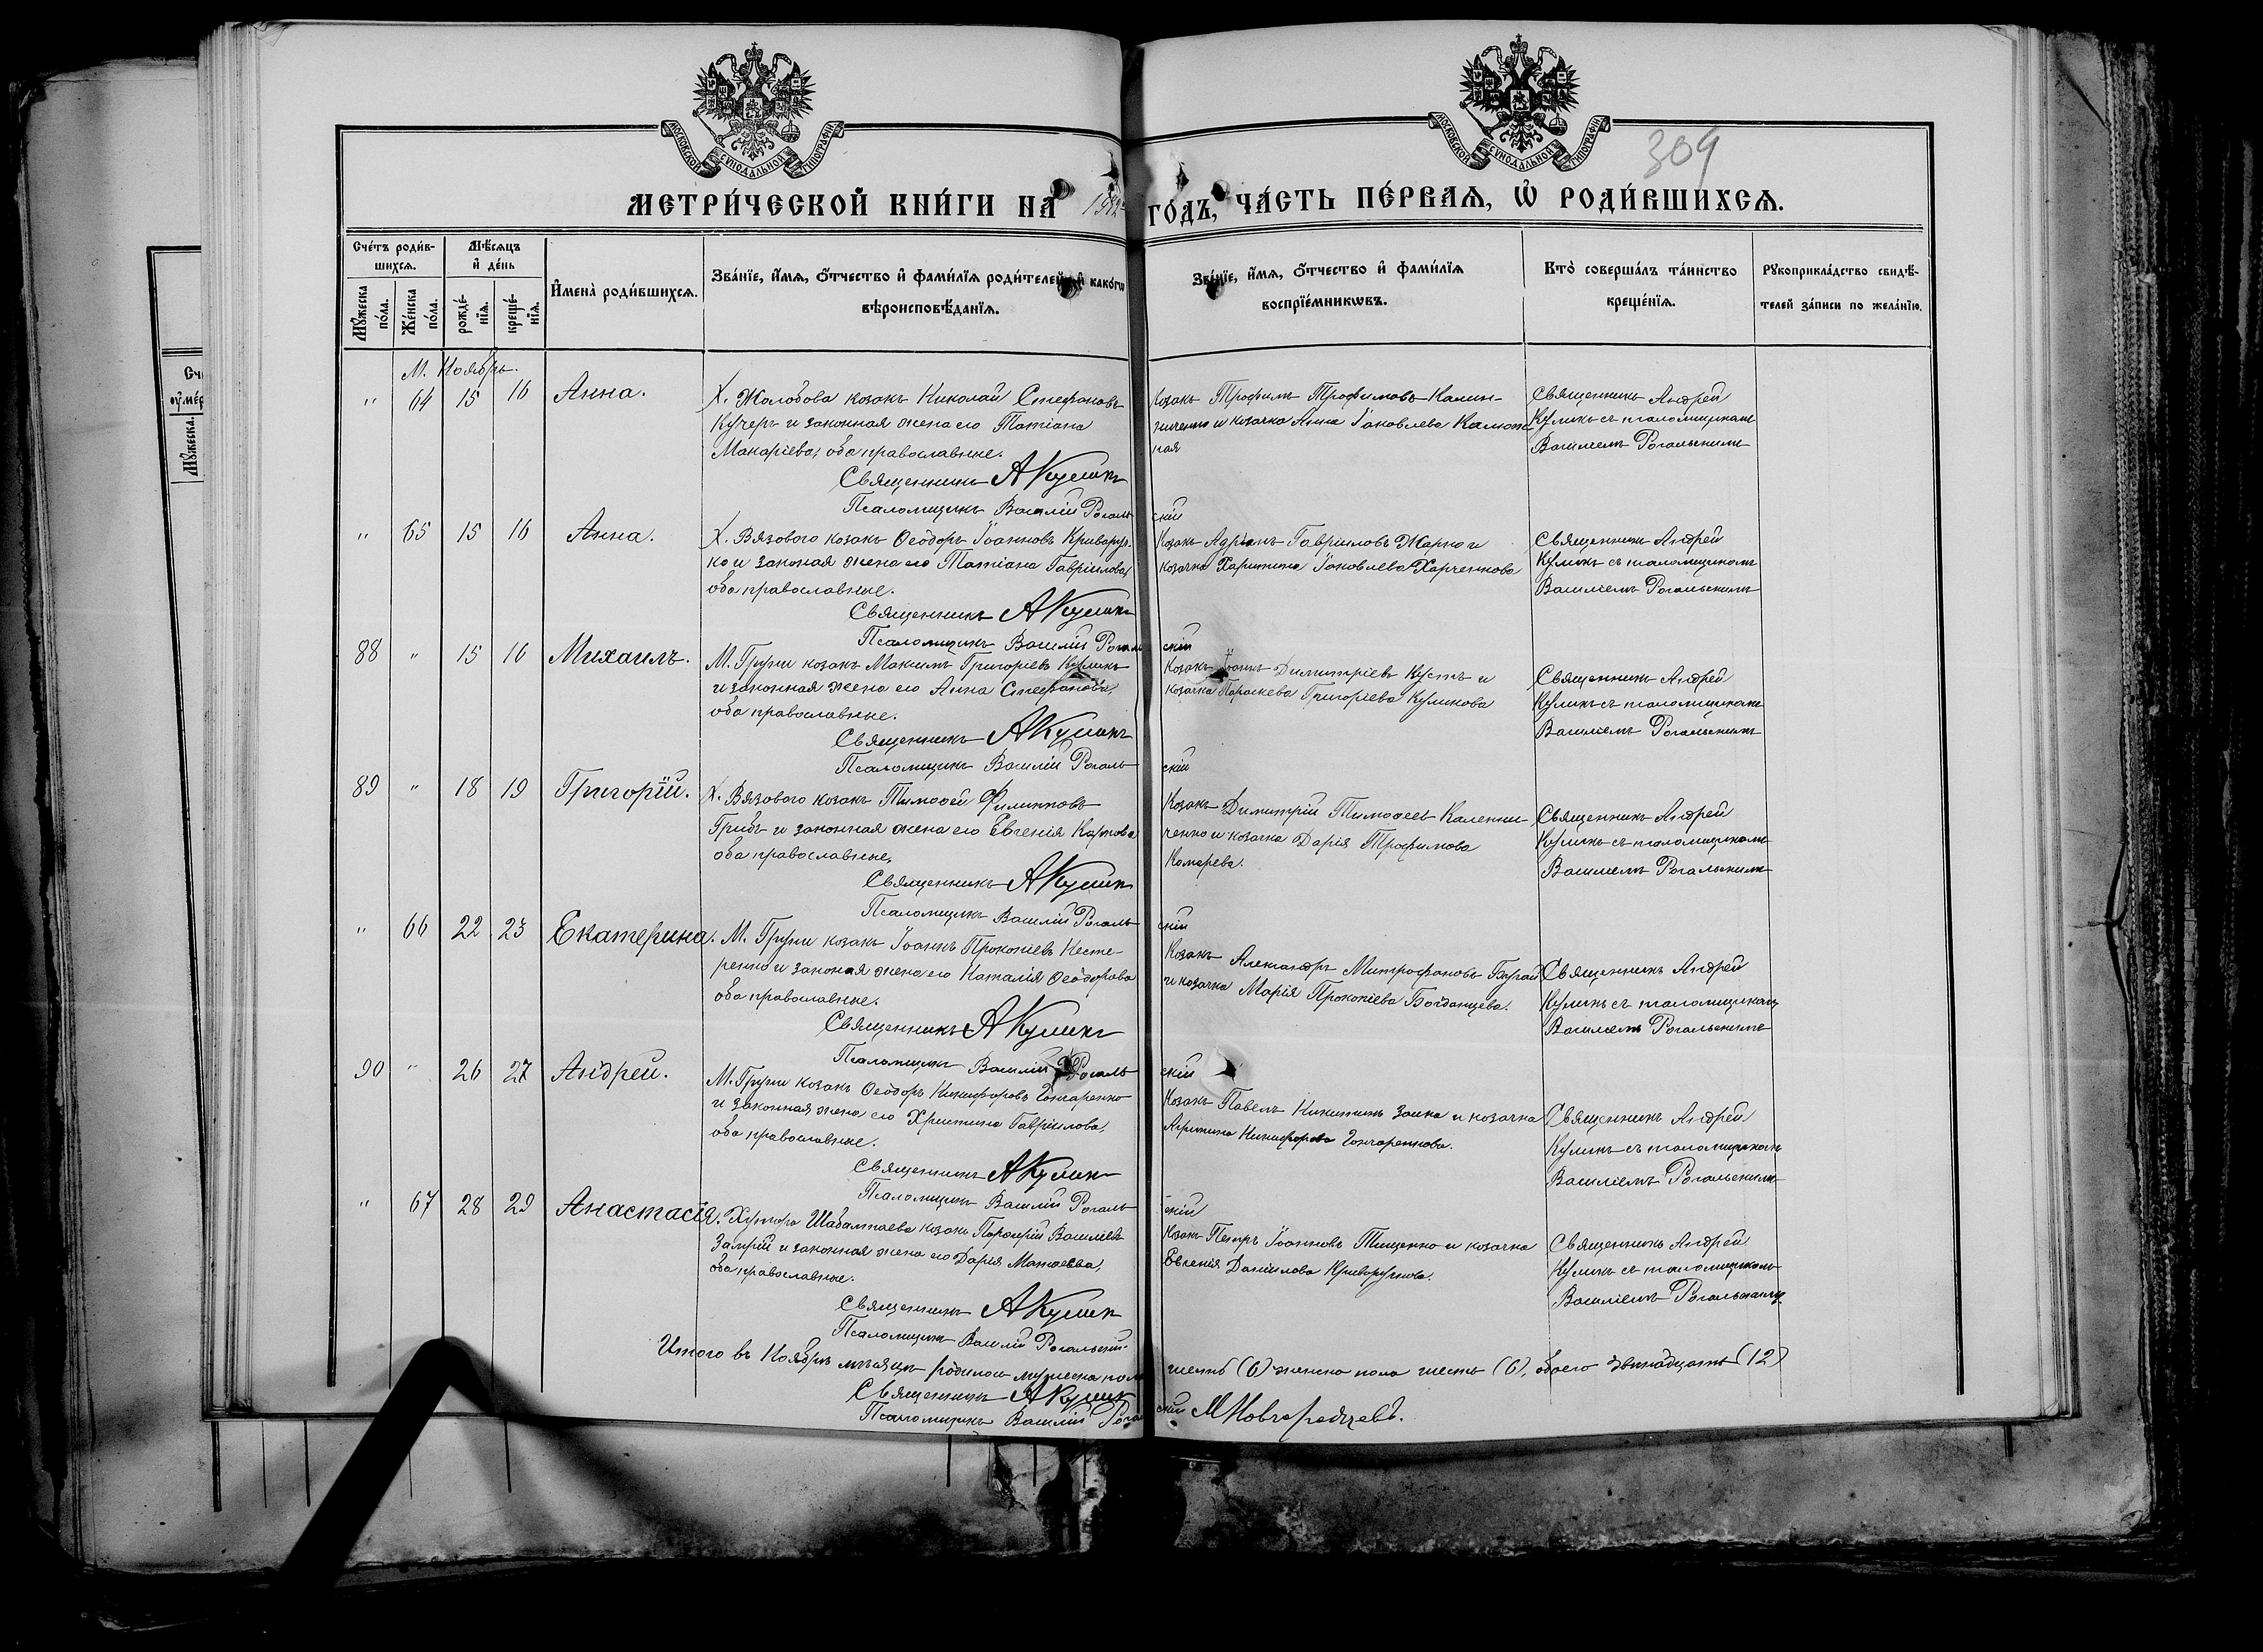 МОСКОВСКОЙ СѴНОДАЛЬНОЙ ТИПОГРАФІИ
МОСКОВСКОЙ СѴНОДАЛЬНОЙ ТИПОГРАФІИ
309
МЕТРИ́ЧЕСКОЙ КНИ́ГИ НА 1912 ГО́ДЪ, ЧА́СТЬ ПЕ́РВАѦ, Ѡ РОДИ́ВШИХСѦ.
Сче́тъ роди́вшихсѧ.
Мꙋ́жеска по́ла.
Же́нска по́ла.
Мѣ́сѧцъ и҆ де́нь
рожде́нїѧ.
креще́нїѧ.
И҆мена̀ роди́вшихсѧ.
Зва́нїе, и҆́мѧ, ѻ҆́тчество и҆ фами́лїѧ роди́телей, и҆ како́гѡ вѣроисповѣ́данїѧ.
Зва́нїе, и҆́мѧ, ѻ҆́тчество и҆ фами́лїѧ воспрїе́мникѡвъ.
Кто̀ соверша́лъ та́инство креще́нїѧ.
Рꙋкоприкла́дство свидѣ́телей за́писи по жела́нїю.
М. Ноябрь.
" 64 15 16 Анна.
Х. Жолобова козакъ Николай Стефановъ
Кучеръ и законная жена его Татіана
Макаріева, оба православные.
Священникъ АКуликъ
Псаломщикъ Василій Рогальскій
Козакъ Трофимъ Трофимовъ Калиниченко и козачка Анна Іаковлева
ная
Священникъ Андрей
Куликъ съ псаломщикомъ
Василіемъ Рогальскимъ
" 65 15 16 Анна.
Х. Вязового козакъ Ѳеодоръ Іоанновъ Криворучко и законая жена его Татіана Гавріилова,
оба православные.
Священникъ АКуликъ
Псаломщикъ Василій Рогальскій
Козакъ Адріанъ Гавріиловъ Жарко и
козачка Харитина Іаковлева Харченкова
Священникъ Андрей
Куликъ съ псаломщикомъ
Василіемъ Рогальскимъ
88 " 15 16 Михаилъ.
М. Груни козакъ Максимъ Григоріевъ Куликъ
и законная жена его Анна Стефанова,
оба православные.
Священникъ АКуликъ
Псаломщикъ Василій Рогальскій
Козакъ Іоаннъ Димитріевъ Кустъ и
козачка Параскева Григоріева Куликова
Священникъ Андрей
Куликъ съ псаломщикомъ
Василіемъ Рогальскимъ
89 " 18 19 Григорій.
Х. Вязового козакъ Тимоѳей Филипповъ
Грибъ и законная жена его Евгенія Карпова
оба православные,
Священникъ АКуликъ
Псаломщикъ Василій Рогальскій
Козакъ Димитрій Тимоѳеевъ Калениченко и козачка Дарія Трофимова
Комарева.
Священникъ Андрей
Куликъ съ псаломщикомъ
Василіемъ Рогальскимъ
" 66 22 23 Екатерина.
М. Груни козакъ Іоаннъ Прокопіевъ Нестеренко и законая жена его Наталія Ѳеодорова
оба православные.
Священникъ АКуликъ
Псаломщикъ Василій Рогальскій
Козакъ Александръ Митрофановъ Бугай
и козачка Марія Прокопіева Богданцева.
Священникъ Андрей
Куликъ съ псаломщикомъ
Василіемъ Рогальскимъ
90 " 26 27 Андрей.
М. Груни козакъ Ѳеодоръ Никифоровъ Гончаренко
и законная жена его Христина Гавріилова,
оба православные.
Священникъ АКуликъ
Псаломщикъ Василій Рогальскій
Козакъ Павелъ Никитинъ Заика и козачка
Никифорова Гончаренкова.
Священникъ Андрей
Куликъ съ псаломщикомъ
Василіемъ Рогальскимъ
" 67 28 29 Анастасія.
Хутора козакъ Порфирій Василіевъ
и законная жена его Дарія Матѳеева,
оба православные.
Священникъ АКуликъ
Псаломщикъ Василій Рогальскій
Козакъ Петръ Іоанновъ Тищенко и козачка
Евгенія Даніилова Криворучкова.
Священникъ Андрей
Куликъ съ псаломщикомъ
Василіемъ Рогальскимъ
Итого въ Ноябрѣ мѣсяцѣ родилось мужеска пола шесть (6) женска пола шесть (6), обоего двѣнадцать (12)
Священникъ АКуликъ
Псаломщикъ Василій Рогальскій
МНовгородцевъ.